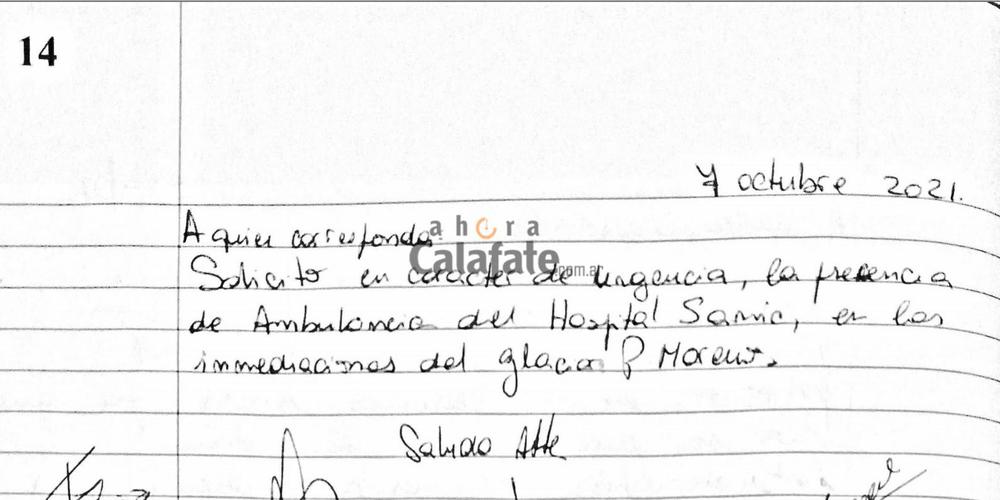 14
7 octubre 2021.
A quien corresponda:
ahora
Calafate
.com.ar
Solicito en caracter de urgencia, la presencia
de Ambulancia del Hospital Samic, en las
inmediaciones del glaciar P Moreno.
Saludo Atte